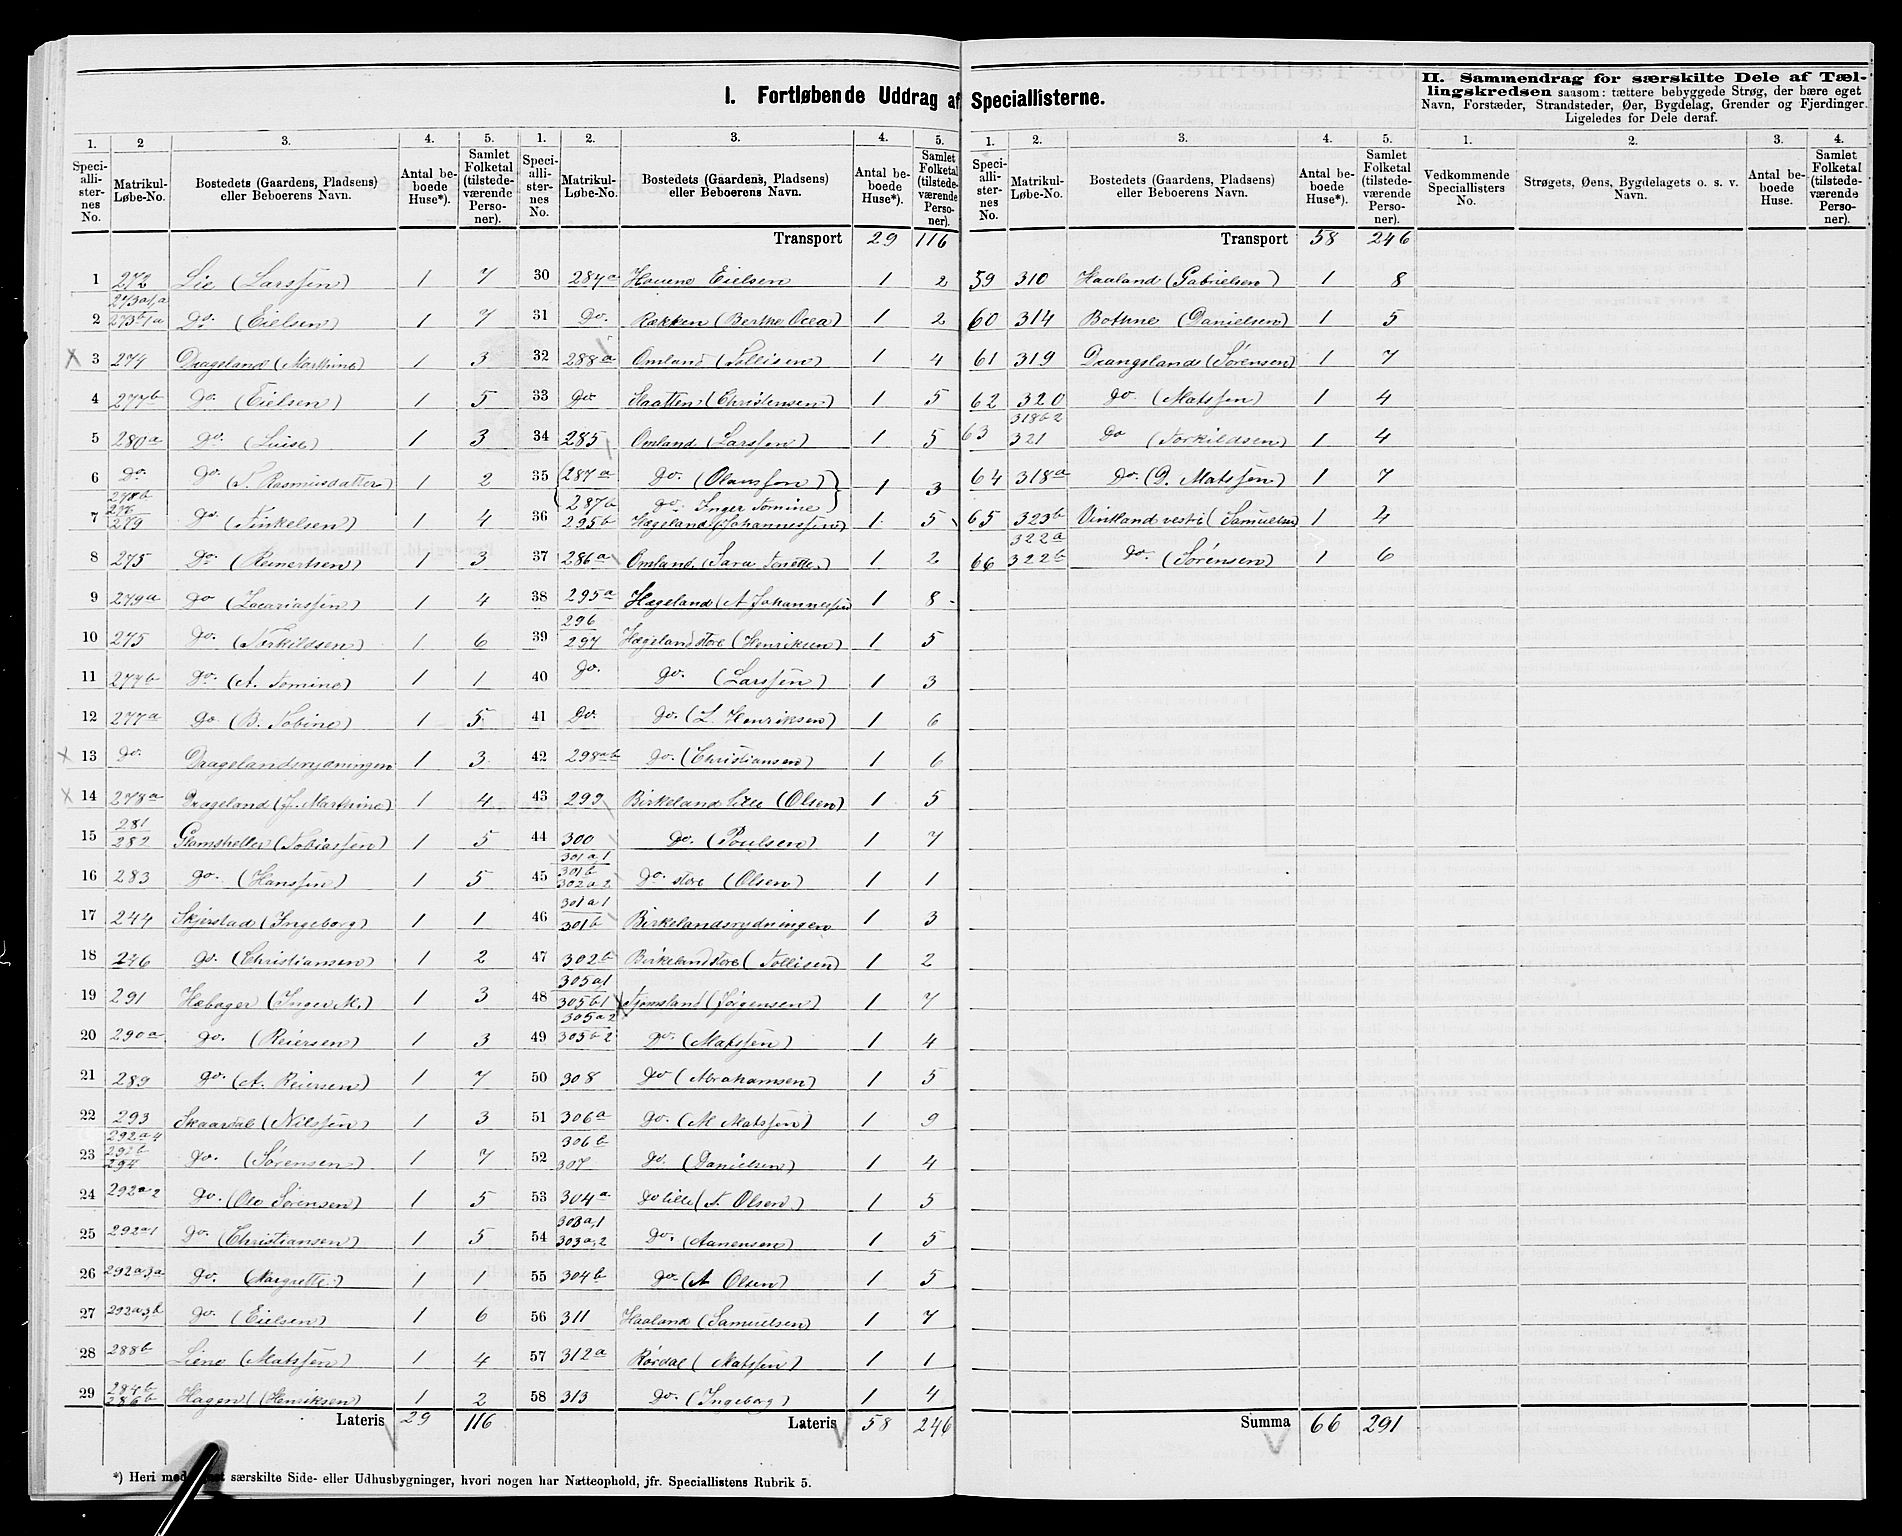 I. Fortløbende Uddrag af Speciallisterne.
II. Sammendrag for særskilte Dele af Tællingskredsen saasom: tættere bebyggede Strøg, der bære eget
Navn, Forstæder, Strandsteder, Øer, Bygdelag, Grender og Fjerdinger.
Ligeledes for Dele deraf.
1. 2 3. 4. 5.
Speciallisternes No. Matrikul-Løbe-No. Bostedets (Gaardens, Pladsens) eller Beboerens Navn. Antal beboede Huse*). Samlet Folketal (tilstedeværende Personer).
1 272 Lie (Larssen) 1 7
2 273a1,a 273b1a Do. (Eielsen) 1 7
3 274 Drageland (Marthine) 1 3
4 277b Do. (Eielsen) 1 5
5 280a Do. (Luise) 1 3
6 Do. Do. (T. Rasmusdatter) 1 2
7 278b 279 Do. (Tinkelsen) 1 4
8 275 Do. (Reinertsen) 1 3
9 279a Do (Zacariassen) 1 4
10 275 Do. (Terkildsen) 1 6
11 277b Do. (A. Tomine) 1 1
12 277a Do. (B. Tobine) 1 5
13 Do. Dragelandsrydningen 1 3
14 278a Drageland (J. Marthine) 1 4
15 281 282 Glamsheller (Tobiassen) 1 5
16 283 Do. (Hanssen) 1 5
17 244 Skjerstad (Ingeborg) 1 1
18 246 Do. (Christiansen) 1 2
19 291 Hæbager (Inger M.) 1 3
20 290a Do. (Reiersen) 1 3
21 289 Do. (A. Reiersen) 1 7
22 293 Skaardal (Nilssen) 1 3
23 292a4 292b 294 Do. (Sørensen) 1 7
24 292a2 Do. (Ole Sørensen) 1 5
25 292a1 Do. (Christiansen) 1 5
26 292a3,a Do. (Margrette) 1 1
27 292a3,b Do. (Eielsen) 1 6
28 288b Liene (Matssen) 1 4
29 284b 286b Hagen (Henriksen) 1 2
Lateris 29 116
1. 2. 3. 4. 5.
Speciallisternes No. Matrikul-Løbe-No. Bostedets (Gaardens, Pladsens) eller Beboerens Navn. Antal beboede Huse*). Samlet Folketal (tilstedeværende Personer).
Transport 29 116
30 284a Hauene Eielsen 1 2
31 Do. Rækken (Berthe Ocea) 1 2
32 288a Omland (Tollisen) 1 4
33 Do. Haatten (Christensen) 1 5
34 285 Omland (Larssen) 1 5
35 287a Do. (Olaussen) 1 3
287b Do. Inger Tomine
36 295b Hægeland (Johannessen) 1 5
37 286a Omland (Sara Tonette) 1 2
38 295a Hægeland (A Johannessen) 1 8
39 296 297 Hægeland store (Henriksen) 1 5
40 Do. Do. (Larssen) 1 3
41 Do. Do. (L. Henriksen) 1 6
42 298ab Do. (Christiansen) 1 6
43 299 Birkeland lille (Olsen) 1 5
44 300 Do. (Poulsen) 1 7
45 301a,1 301b 302a,2 Do. store (Olsen) 1 1
46 301a1 301b Birkelandsrydningen 1 3
47 302b Birkeland store (Tollisen) 1 2
48 305a,1 305b,1 Tjomsland (Jørgensen) 1 7
49 305a2 305b2 Do. (Matssen) 1 4
50 308 Do (Abrahamsen) 1 5
51 306a Do. (M Matssen) 1 9
52 306b 307 Do. (Danielsen) 1 4
53 304a Do lille (T. Olsen) 1 5
54 303a,1 303a,2 Do. (Aanensen) 1 5
55 304b Do. (A Olsen) 1 5
56 311 Haaland (Samuelsen) 1 7
57 312a Rørdal (Matssen) 1 1
58 313 Do. (Ingeborg) 1 4
Lateris 58 246
*) Heri særskilte Side- eller Udhusbygninger, hvori nogen har Natteophold, jfr. Speciallistens Rubrik 5.
1. 2. 3. 4. 5.
Speciallisternes No. Matrikul-Løbe-No. Bostedets (Gaardens, Pladsens) eller Beboerens Navn. Antal beboede Huse*). Samlet Folketal (tilstedeværende Personer).
Transport 58 246
59 310 Haaland (Gabrielsen) 1 8
60 314 Bothne (Danielsen) 1 5
61 319 Drangsland (Sørensen) 1 7
62 320 Do. (Matssen) 1 4
63 318b2 321 Do (Torkildsen) 1 4
64 318a Do. (D. Matssen) 1 7
65 323b Vintland vestre (Samuelsen) 1 4
66 322a 322b Do. (Sørensen) 1 6
Summa 66 291
1. 2. 3. 4.
Vedkommende Speciallisters No. Strøgets, Øens, Bygdelagets o. s. v. Navn. Antal beboede Huse. Samlet Folketal (tilstedeværende Personer).